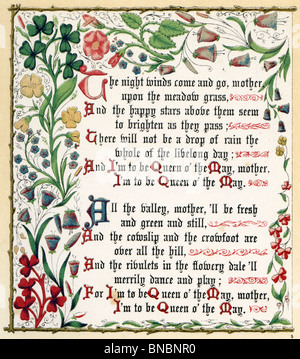 The night winds come and go, mother
upon the meadow grass,
And the happy stars above them seem
to brighten as they pass;
There will not be a drop of rain the
whole of the livelong day;
And I'm to be Queen o' the May, mother,
I'm to be Queen o' the May.
All the valley, mother, 'll be fresh
and green and still,
And the cowslip and the crowfoot are
over all the hill,
And the rivulets in the flowery dale 'll
merrily dance and play;
For I'm to be Queen o' the May, mother,
I'm to be Queen o' the May.
alamy
Image ID: BNBNR0
www.alamy.com